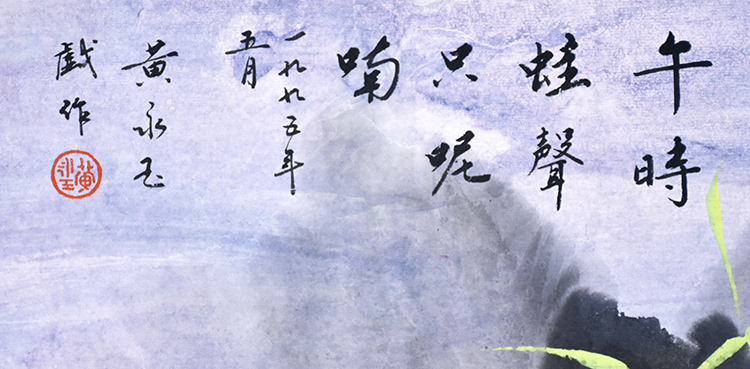 午時
蛙聲
只呢
喃
一九九五年
五月
黃永玉
戲作
黃永玉